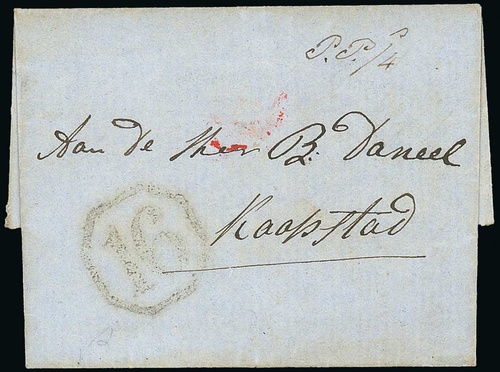 P.P. 1/4
Aan De Heer B: Daneel
Kaapstad
16